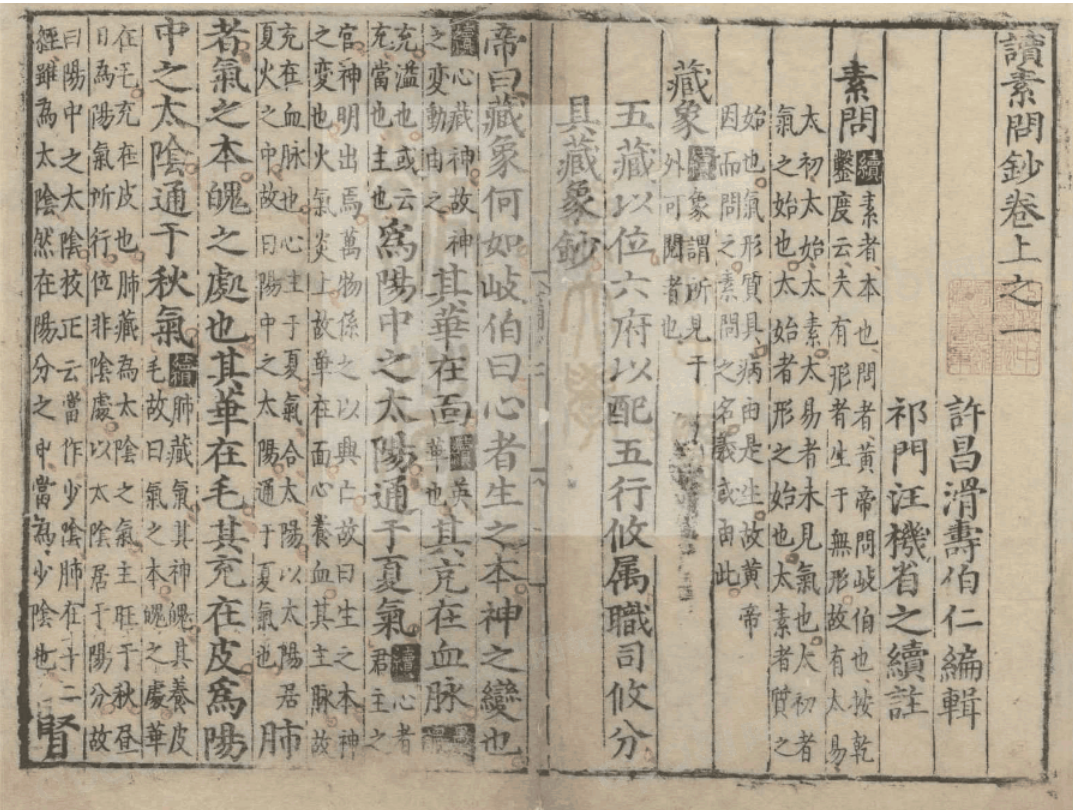 讀素問鈔卷上之一
許昌滑壽伯仁編輯
祁門汪機省之續註
素問續素者本也問者黃帝問岐伯也按乾鑿度云夫有形者生于無形故有太易
太初太始太素太易者未見氣也太初者氣之始也太始者形之始也太素者質之
始也氣形質具病由是生故黃帝因而問之素問之名義或由此
藏象續象謂所見于外可閱者也
五藏以位六府以配五行攸属職司攸分
具藏象鈔
帝曰藏象何如岐伯曰心者生之本神之變也
續心藏神故神之變動由之其華在面續英華也其充在血脉
充溢也或云充當也主也爲陽中之太陽通于夏氣續心者君主之
官神明出焉萬物係之以興亡故曰生之本神之變也火氣炎上故華在面心養血其主脉故
充在血脉也心主于夏氣合太陽以太陽居夏火之中故曰陽中之太陽通于夏氣也肺
者氣之本魄之處也其華在毛其充在皮爲陽
中之太陰通于秋氣續肺藏氣其神魄其養皮毛故曰氣之本魄之處華
在毛充在皮也肺藏為太陰之氣主旺于秋昼日為陽氣所行位非陰處以太陰居于陽分故
曰陽中之太陰校正云當作少陰肺在十二經雖為太陰然在陽分之中當為少陰也腎